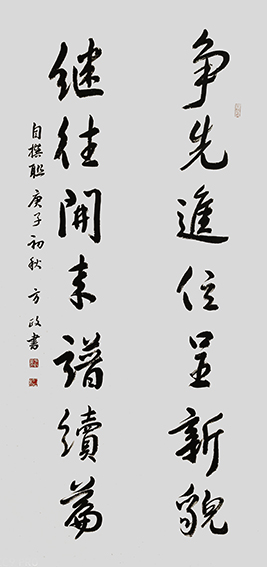 争先進位呈新貌
继往開来譜續篇
自撰聯 庚子初秋 方政書